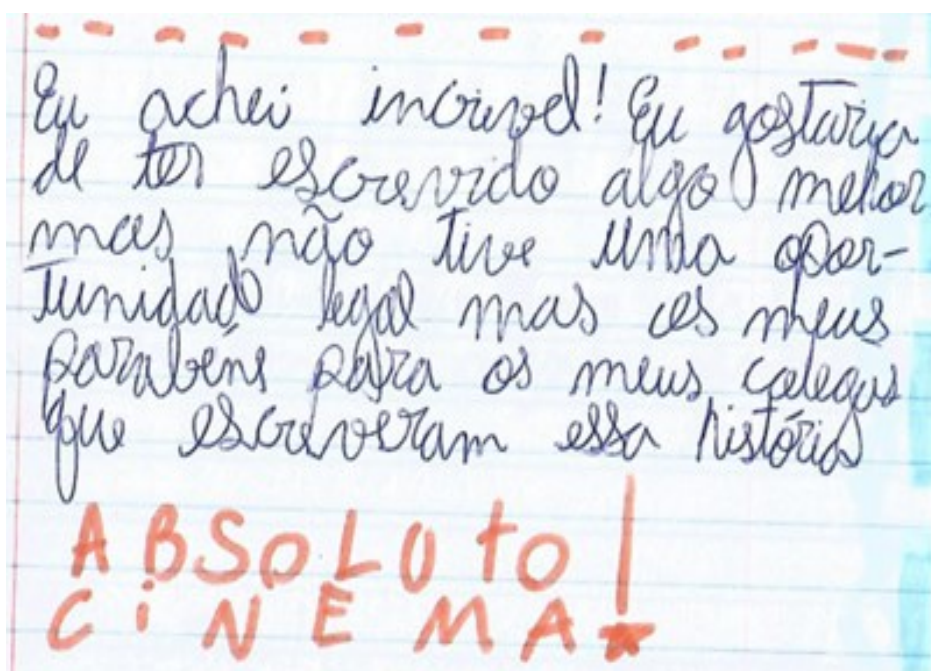 Eu achei incrivel! Eu gostaria
de ter escrevido algo mehor
mas não tive uma opor-
tunidade legal mas os meus
parabéns para os meus colegas
que escreveram essa história
ABSOLUto!
CiNEMA